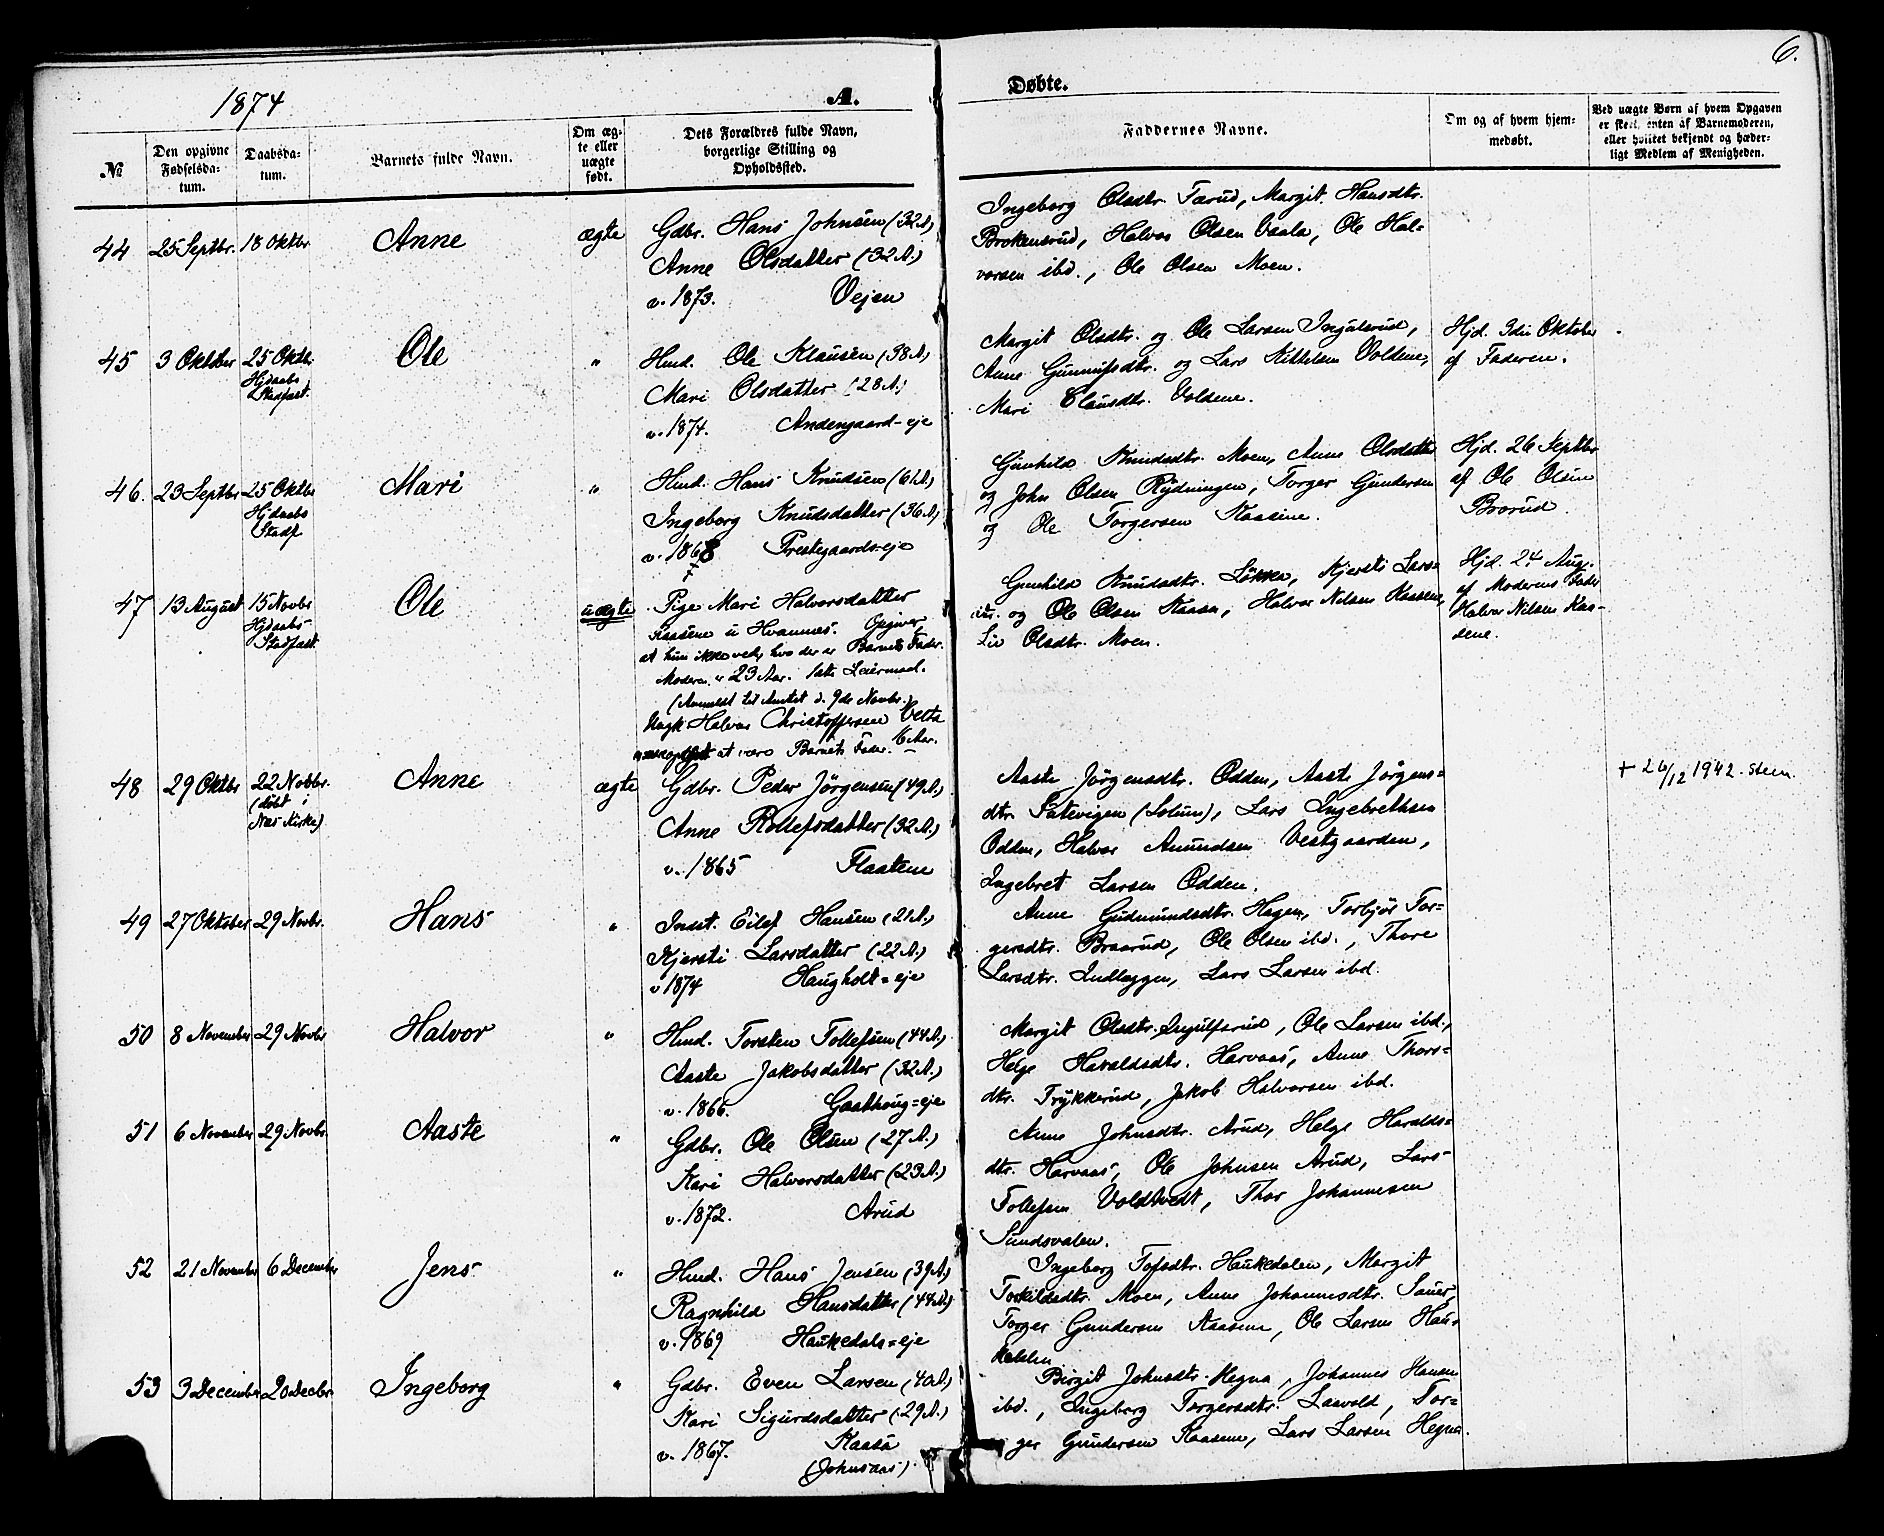 6.
1874
A.
Døbte.
№
Den opgivne Fødselsdatum.
Daabsdatum.
Barnets fulde Navn.
Om ægte eller uægte født.
Dets Forældres fulde Navn, borgerlige Stilling og Opholdssted.
Faddernes Navne.
Om og af hvem hjemmedøbt.
Ved uægte Børn af hvem Opgaven er skeet, enten af Barnemoderen, eller hvilket bekjendt og hæderligt Medlem af Menigheden.
44 25 Septbr. 18 Oktbr. Anne ægte
Gdbr. Hans Johnsen (32 A.)
Anne Olsdatter (32 A.)
v. 1873. Vejen
Ingeborg Olsdtr. Tærud, Margit Hansdtr.
Brokensrud, Halvor Olsen Vaala, Ole Hal=
vorsen ibd., Ole Olsen Moen.
45 3 Oktober 25 Oktb. Ole "
Hjdaabs
Stadfæst.
Hmd. Ole Klausen (38 A.)
Mari Olsdatter (28 A.)
v. 1874. Andengaard-eje
Margit Olsdtr. og Ole Larsen Ingulsrud,
Anne Gunnufsdtr. og Lars Kittelsen Voldene,
Mari Clausdtr. Voldene.
Hjd. 3die Oktober
af Faderen.
46. 23 Septbr 25 Oktbr Mari "
Hjdaabs
Stadf.
Hmd. Hans Knudsen (61 A.)
Ingeborg Knudsdatter (36 A.)
v. 1868 Prestegaards-eje
Gunhild Knudsdtr. Moen, Anne Olsdatter
og John Olsen Rydningen, Torger Gundersen
og Ole Torgersen Kaasene.
Hjd. 26 Septbr
af Ole Olsen
Brorud
47 13 August 15 Novbr Ole uægte
Hjdaabs-
Stadfæst.
Pige Mari Halvorsdatter
Kaasene u Hvannes. Opgiver,
at hun ikke ved, hvo der er Barnets Fader.
Moderen er 23 Aar. 1ste Leiermaal.
(Anmeldt til Amtet d. 9de Novbr.)
Ungk. Halvor Christoffersen Vetta
at være Barnets Fader. 16 Aar.
Gunhild Knudsdtr. Løkka, Kjersti Lars=
dtr. og Ole Olsen Kaasa, Halvor Nilsen Kaasene,
Liv Olsdtr. Moen.
Hjd. 24 Aug.
af Moderens Fader
Halvor Nilsen Kaa=
sene.
48 29 Oktbr 22 Novbr. Anne ægte
(døbt i
Næs Kirke)
Gdbr. Peder Jörgensen (49 A.)
Anne Rollefsdatter (32 A.)
v. 1865 Flaatene
Aaste Jörgensdtr. Odden, Aaste Jörgens=
dtr. Fatevigen (Solum), Lars Ingebrethsen
Odden, Halvor Amundsen Vestgaarden,
Ingebret Larsen Odden.
+ 26/12 1942.
49 27 Oktober 29 Novbr. Hans "
Indst. Eilef Hansen (21 A.)
Kjersti Larsdatter (22 A.)
v 1874 Haugholt=eje
Anne Gudmundsdtr. Hagen, Torbjør Tor=
gersdtr. Braarud, Ole Olsen ibd., Thore
Larsdtr. Indlæggen, Lars Larsen ibd.
50 8 November 29 Novbr Halvor "
Hmd. Torsten Tollefsen (44 A.)
Aaste Jakobsdatter (32 A.)
v. 1866. Gaathoug=eje
Margit Olsdtr. Ingulfsrud, Ole Larsen ibd.,
Helge Haraldsdtr. Harvaas, Anne Thors=
dtr. Trykkerud, Jakob Halvorsen ibd.
51 6 November 29 Novbr. Aaste "
Gdbr. Ole Olsen (27 A.)
Kari Halvorsdatter (23 A.)
v. 1872. Arud
Anne Johnsdtr. Arud, Helge Haralds=
dtr. Harvaas, Ole Johnsen Arud, Lars
Tollefsen Voldtvedt, Thor Johannesen
Sundsvalen.
52 21 November 6 December Jens "
Hmd. Hans Jensen (39 A.)
Ragnhild Hansdatter (44 A.)
v. 1869 Haukedals=eje
Ingeborg Tofsdtr. Haukedalen, Margit
Torkildsdtr. Moen, Anne Johannesdtr. Sauer,
Torger Gundersen Kaasene, Ole Larsen Hau=
kdalen
53 3 December 20 Decbr. Ingeborg "
Gdbr. Even Larsen (40 A.)
Kari Sigurdsdatter (29 A.)
v. 1867. Kaasa
(Johnsaas)
Birgit Johnsdtr. Hegna, Johannes Hansen
ibd., Ingeborg Torgersdtr. Laavold, Tor=
ger Gundersen Kaasene, Lars Larsen Hegna.